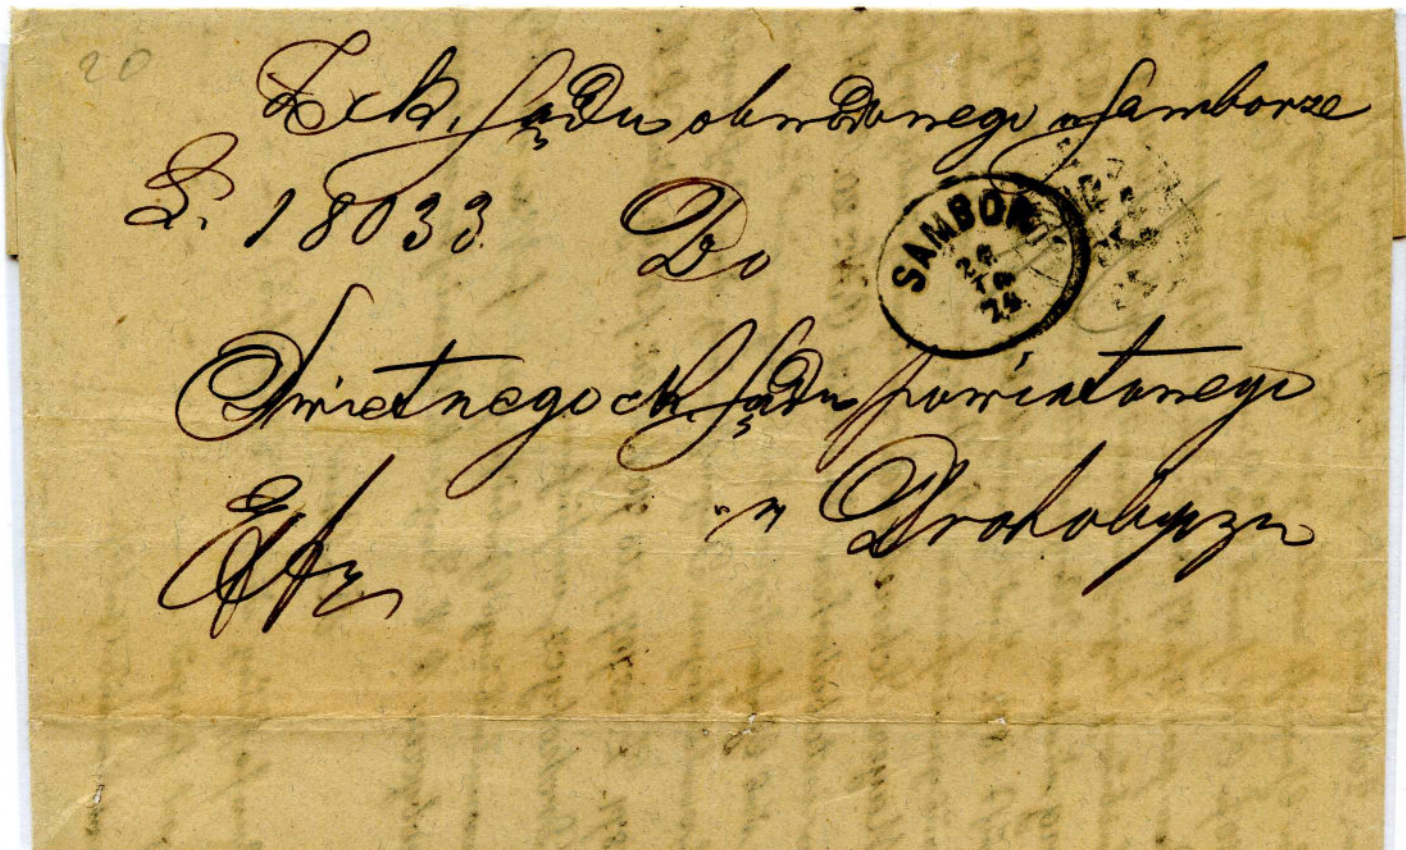 20
Z ck. Sądu obwodowego w Samborze
L. 18033 Do
SAMBOR
Świetnego ck. Sądu powiatowego
w Drohobyczu